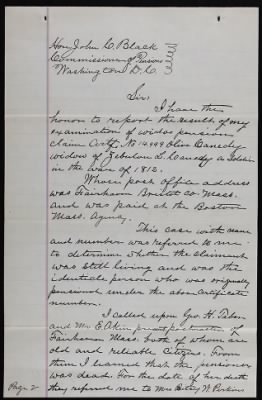 Hon John C. Black
Commissioner of Pensions
Washington D.C.
Sir,
I have the
honor to report the results of my
examination of widow pension
claim Certf. No 14,999 Olive Canedy
widow of Zebulon L. Canedy a Soldier
in the war of 1812.
Whose post office address
was Fairhaven Bristol Co. Mass.
and was paid at the Boston
Mass. Agency.
This case with name
and number was referred to me
to determine whether the claimant
was still living and was the
identicle person who was originally
pensioned under the above certificate
number.
I called upon Geo. H. Taber
and Mr E. Akin present postmaster of
Fairhaven Mass. both of whom are
old and reliable Citizens. From
them I learned that the pensioner
was dead. For the date of her death
they refered me to Mrs W. Perkins
Page 2